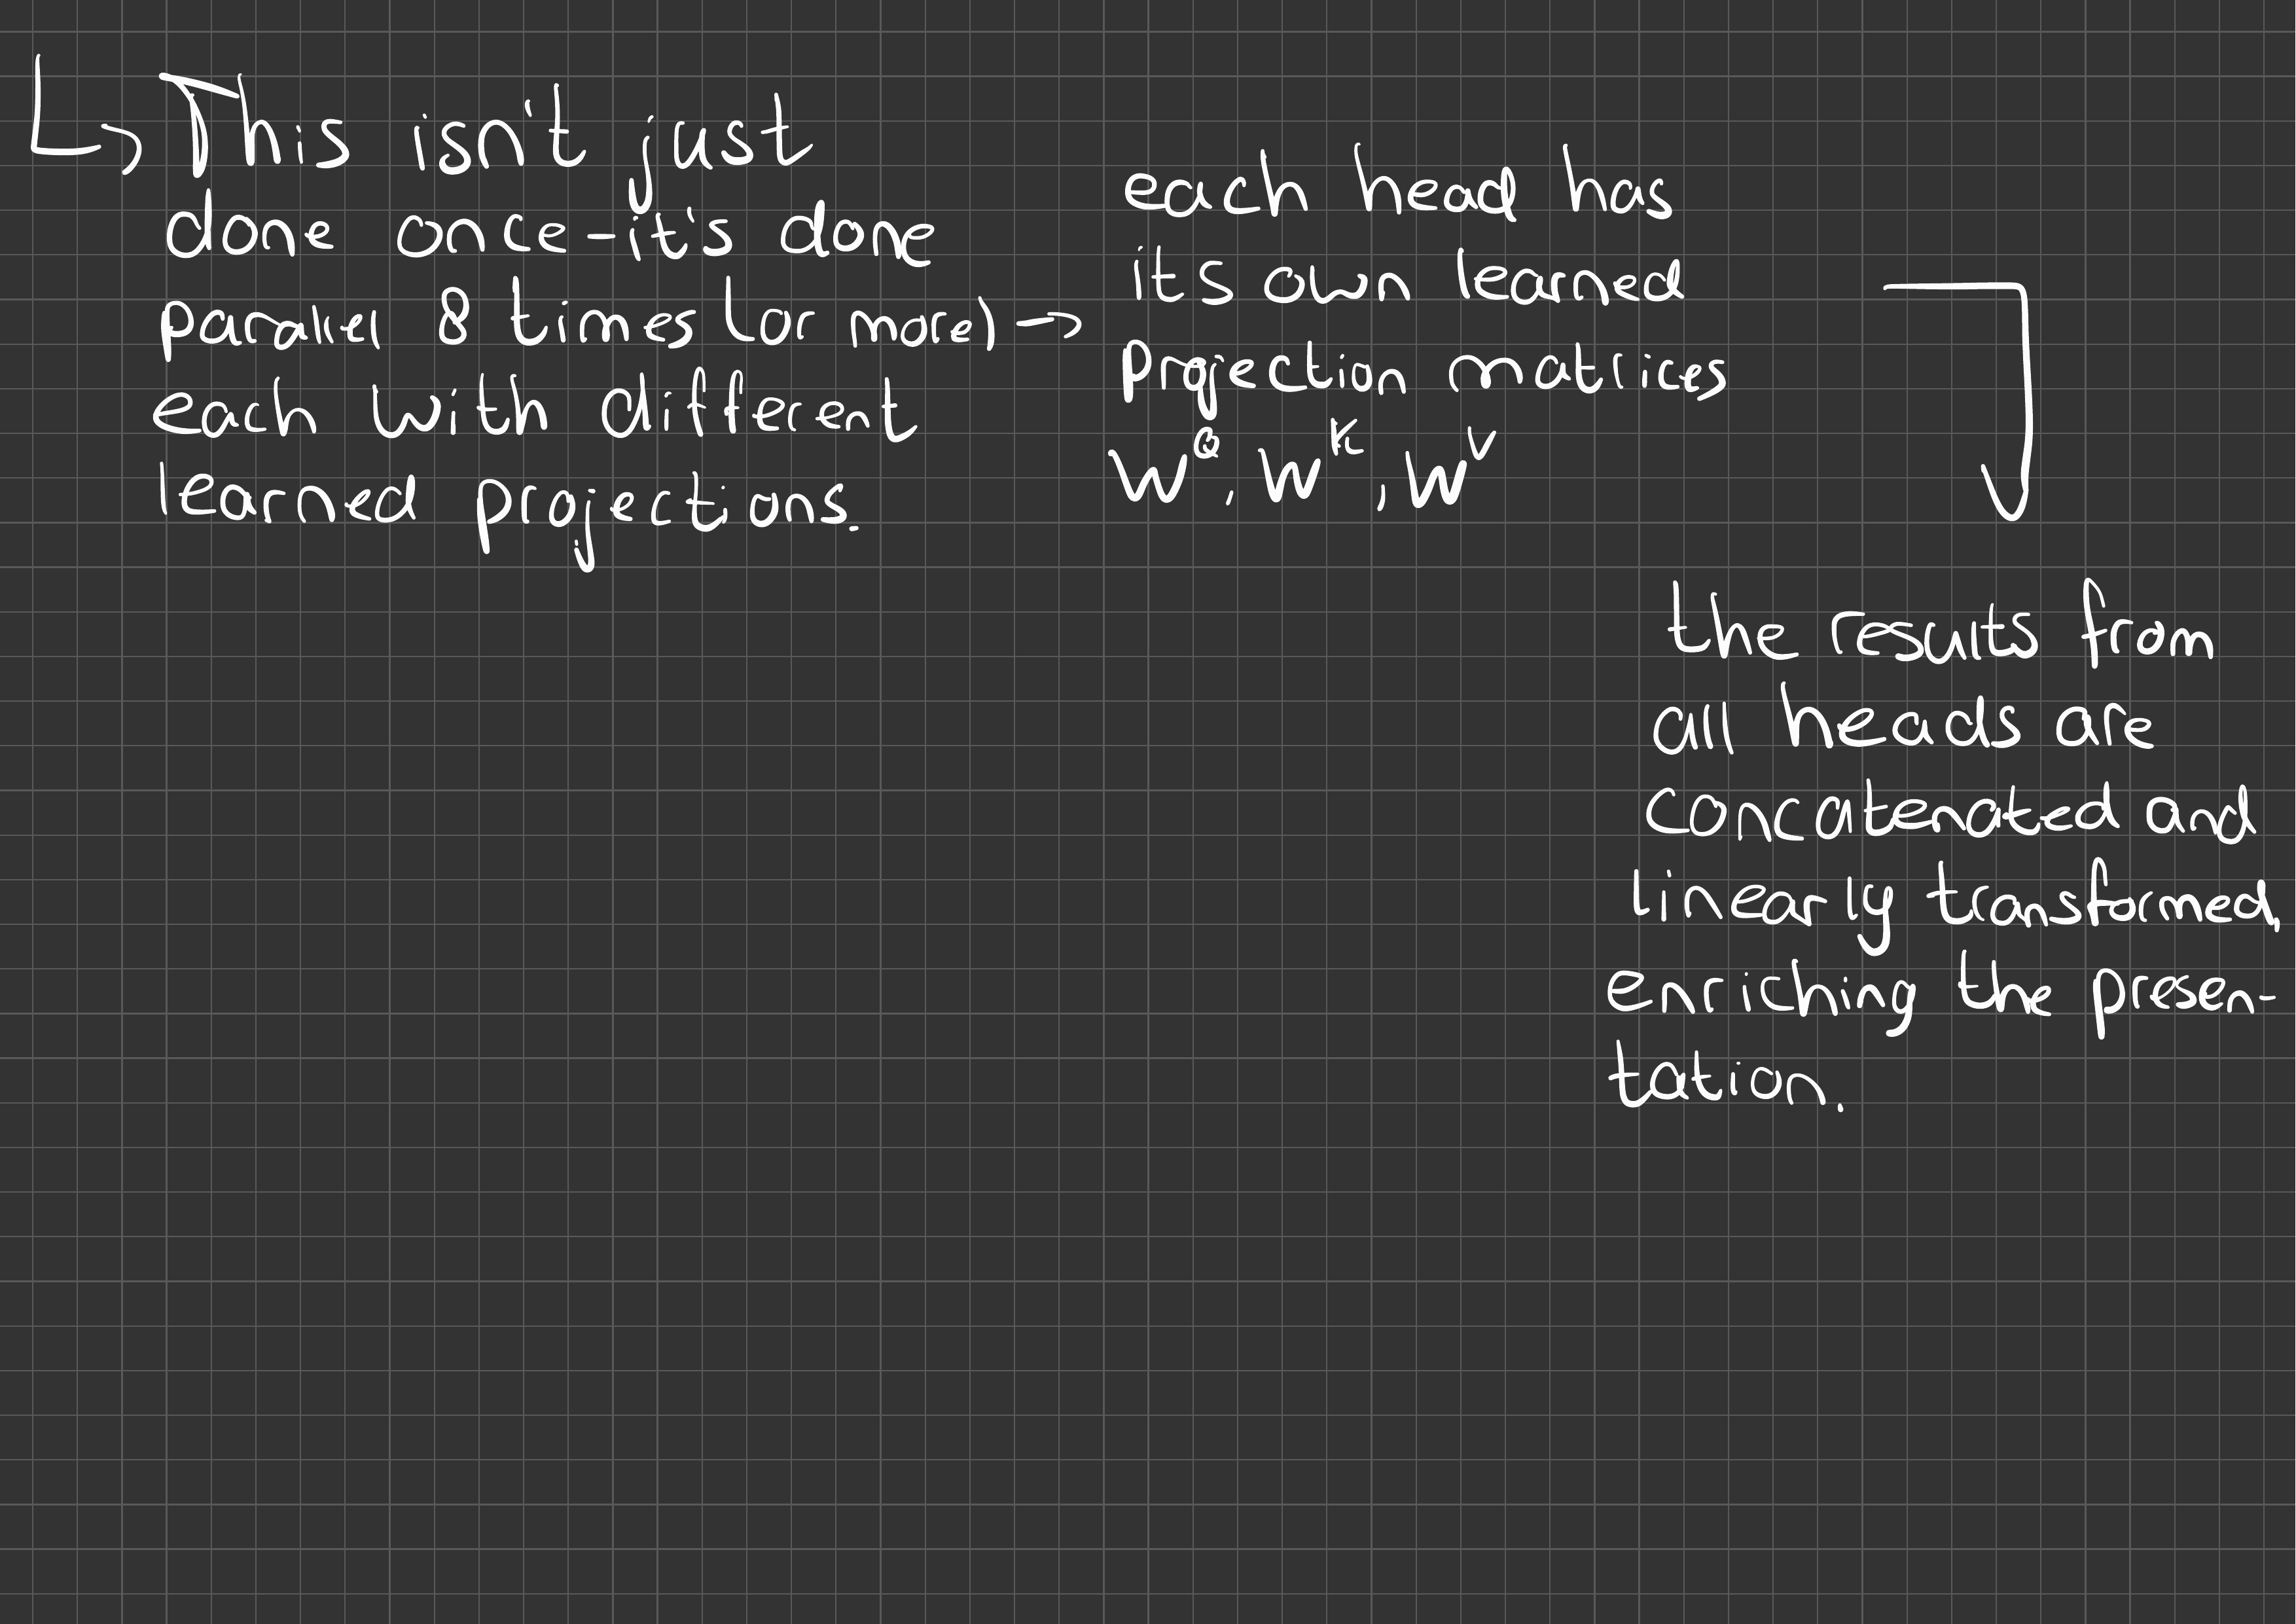 ↳ This isn't just
done once - it's done
parallel 8 times (or more) →
each with different
learned projections.
each head has
its own learned
projection matrices
W^Q, W^K, W^V
the results from
all heads are
concatenated and
linearly transformed,
enriching the presen-
tation.